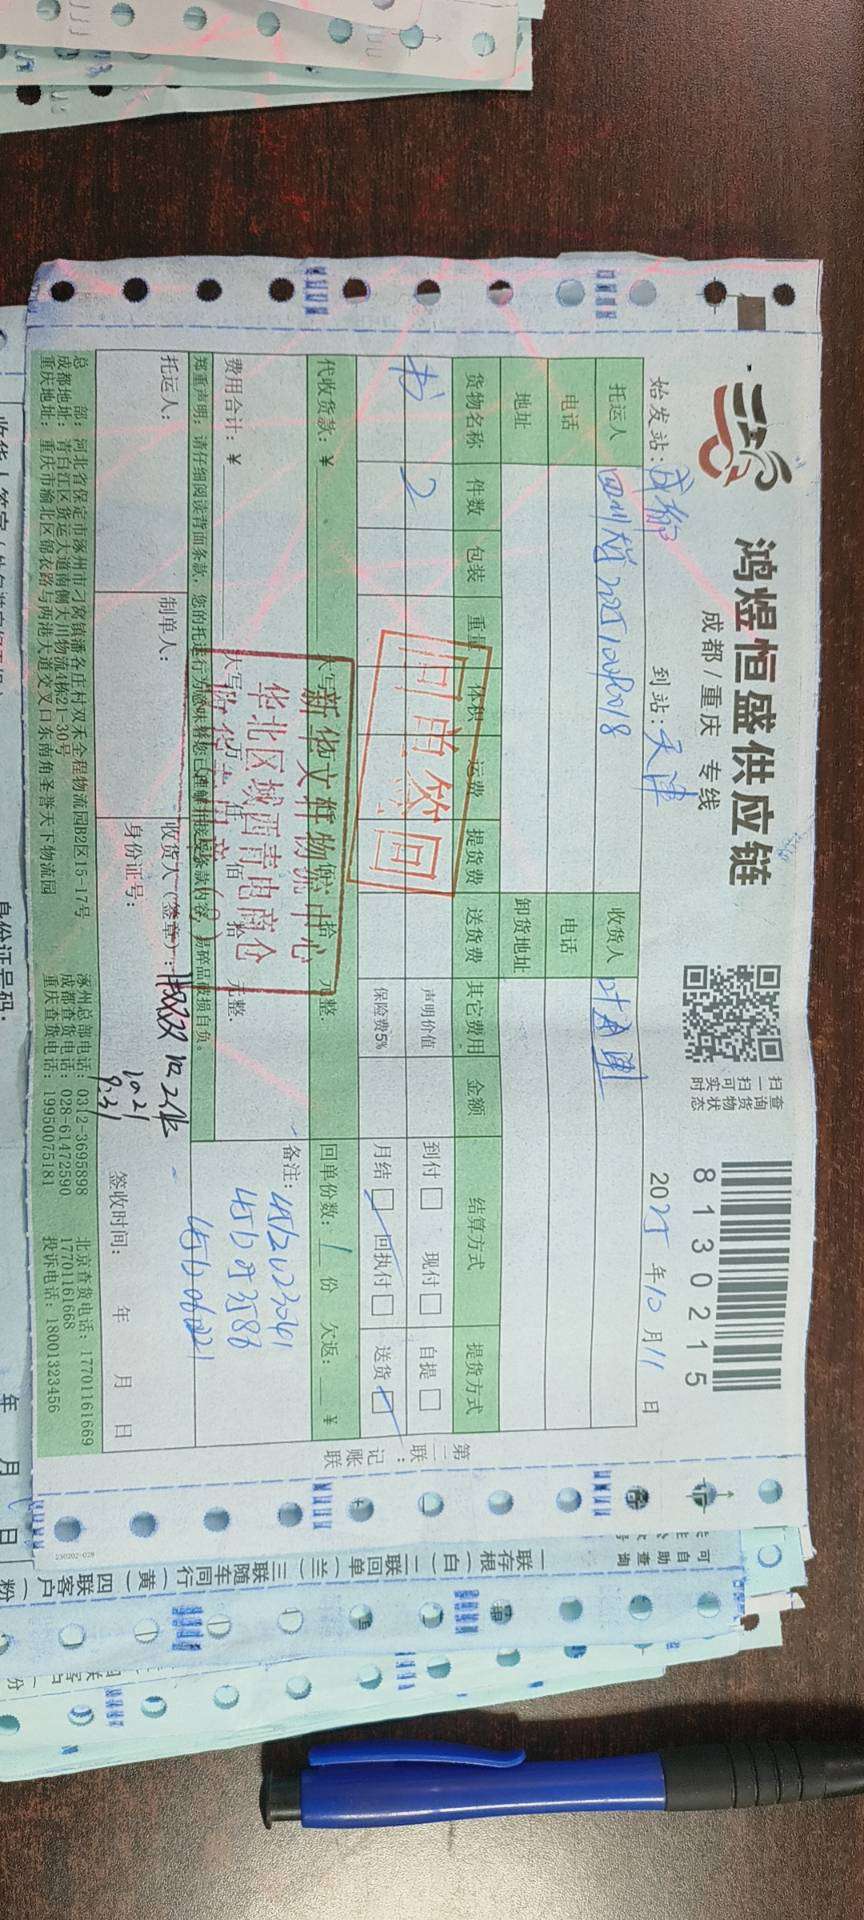 鸿煜恒盛供应链
成都/重庆 专线
扫一扫可实时
查询货物状态
8130215
始发站：成都
到站：天津
2025年10月11日
托运人
收货人
电话
电话
地址
卸货地址
货物名称 件数 包装 重量 体积 运费 提货费 送货费 其它费用 金额 结算方式 提货方式
书 2
声明价值
到付□ 现付□ 自提□
保险费5%
月结□ 回执付□ 送货□
回单签回
代收货款：¥
大写 万 仟 佰 拾 元整.
回单份数：1份 欠返： ¥
费用合计：¥
备注：
新华文轩物流中心
华北区域西青电商仓
郑重声明：请仔细阅读背面条款，您的托运行为意味着您已理解并接受条款内容，易碎品破损自负。
托运人：
制单人：
收货人（签章）：
身份证号：
10.21
9:31
签收时间： 年 月 日
总 部：河北省保定市涿州市刁窝镇潘各庄村双禾全程物流园B2区15-17号
成都地址：青白江区货运大道南侧大川物流4栋21-30号
重庆地址：重庆市渝北区锦衣路与两港大道交叉口东南角圣誉天下物流园
涿州总部电话：0312-3695898
成都查货电话：028-61472590
重庆查货电话：19950075181
北京查货电话：17701161669
17701161668
投诉电话：18001323456
第二联：记账联
230202-028
一联存根（白）二联回单（兰）三联随车同行（黄）四联客户（粉
身份证号码：
年 月 日